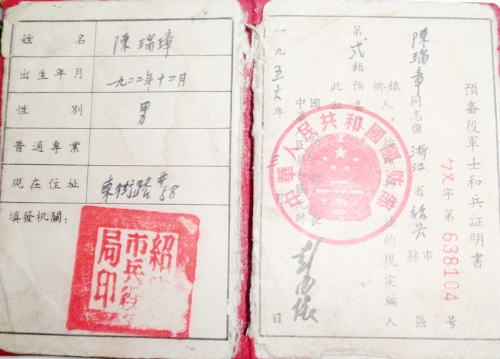 預备役軍士和兵証明書
字第 638104 号
陳瑞章同志係浙江省紹兴市縣區
鎮鄉人,按照 法的規定編入
第弍類預
此
國
中華人民共和國元帥
一九五六年三月 日
中華人民共和國國防部
姓名 陳瑞璋
出生年月 一九二二年十二月
性別 男
普通專業
現在住址 東街路#58
填發机關:
紹
市兵役
局印